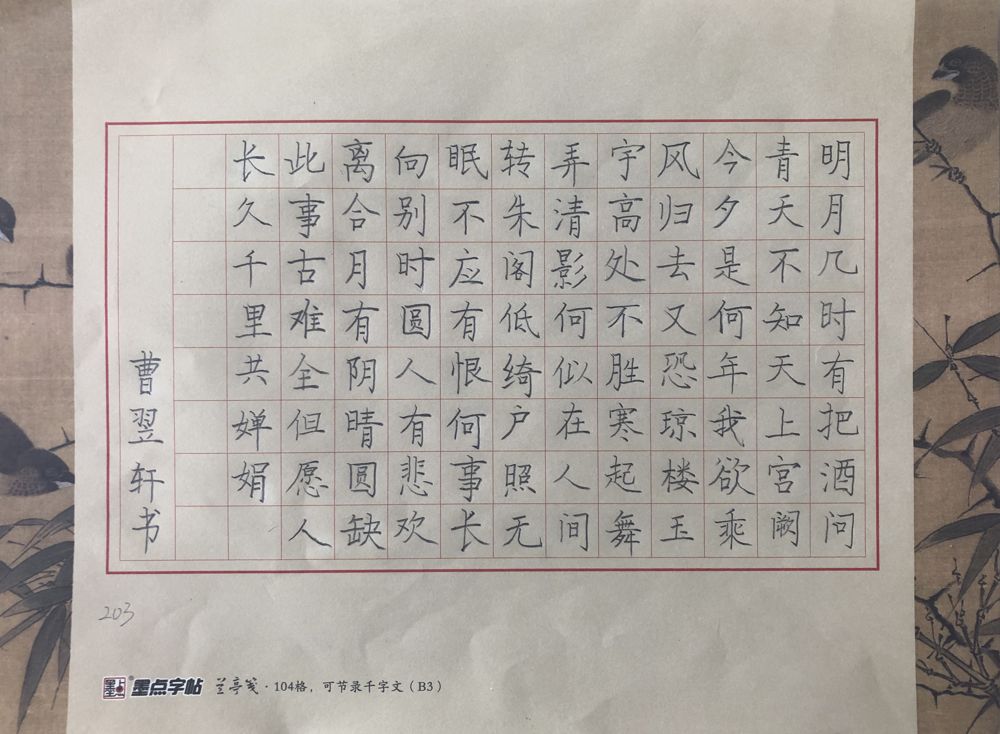 明月几时有把酒问
青天不知天上宫阙
今夕是何年我欲乘
风归去又恐琼楼玉
宇高处不胜寒起舞
弄清影何似在人间
转朱阁低绮户照无
眠不应有恨何事长
向别时圆人有悲欢
离合月有阴晴圆缺
此事古难全但愿人
长久千里共婵娟
曹翌轩书
203
墨点字帖 兰亭笺·104格，可节录千字文（B3）